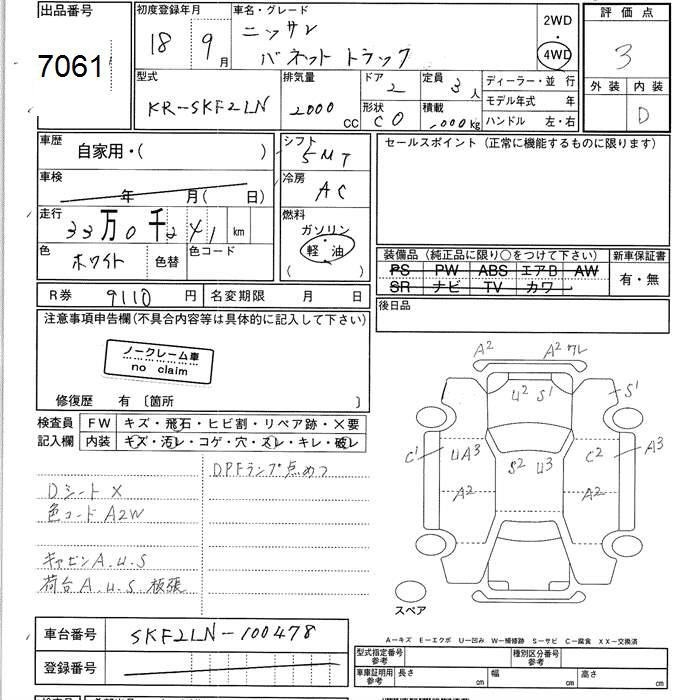 出品番号
7061
初度登録年月
18 9月
車名・グレード
ニッサン
バネット トラック
2WD
・
4WD
評価点
3
外装 内装
D
型式
KR-SKF2LN
排気量
2000 CC
ドア
2
定員
3人
形状
CO
積載
,000kg
ディーラー・並行
モデル年式 年
ハンドル 左・右
車歴
自家用・( )
シフト
5MT
セールスポイント(正常に機能するものに限ります)
車検
年 月( 日)
冷房
AC
走行
33万0千241km
燃料
ガソリン
軽油
( )
色
ホワイト
色替
色コード
装備品(純正品に限り○をつけて下さい)
新車保証書
PS PW ABS エアB AW
SR ナビ TV カワ
有・無
R券 9110円
名変期限 月 日
後日品
注意事項申告欄(不具合内容等は具体的に記入して下さい)
ノークレーム車
no claim
修復歴 有〔箇所 〕
検査員
記入欄
FW キズ・飛石・ヒビ割・リペア跡・×要
内装 キズ・汚レ・コゲ・穴・スレ・キレ・破レ
DPFランプ点めつ
Dシート×
色コードA2W
キャビンA.U.S
荷台A.U.S 板張
A2 A2 ワレ
U2 S1 S1
C1 UA3 S2 U3 C2 A3
A2 A2
スペア
A-キズ E-エクボ U-凹み W-補修跡 S-サビ C-腐食 XX-交換済
車台番号 SKF2LN-100478
登録番号
型式指定番号
参考
種別区分番号
参考
車庫証明用
参考
長さ cm
幅 cm
高さ cm